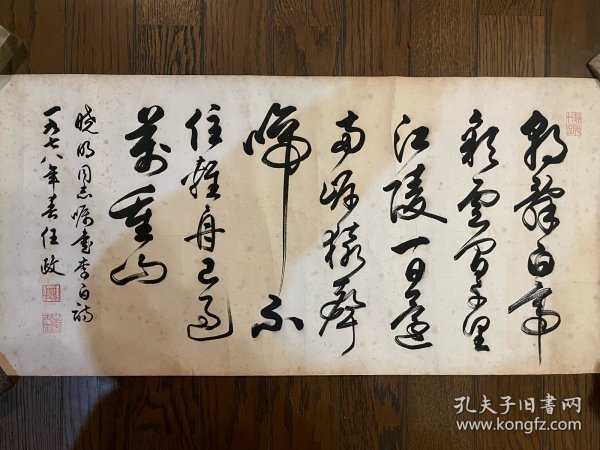 朝辞白帝
彩云间千里
江陵一日还
两岸猿声
啼不
住轻舟已过
万重山
晓明同志嘱书李白诗
一九七八年春任政
孔夫子旧书网
www.kongfz.com